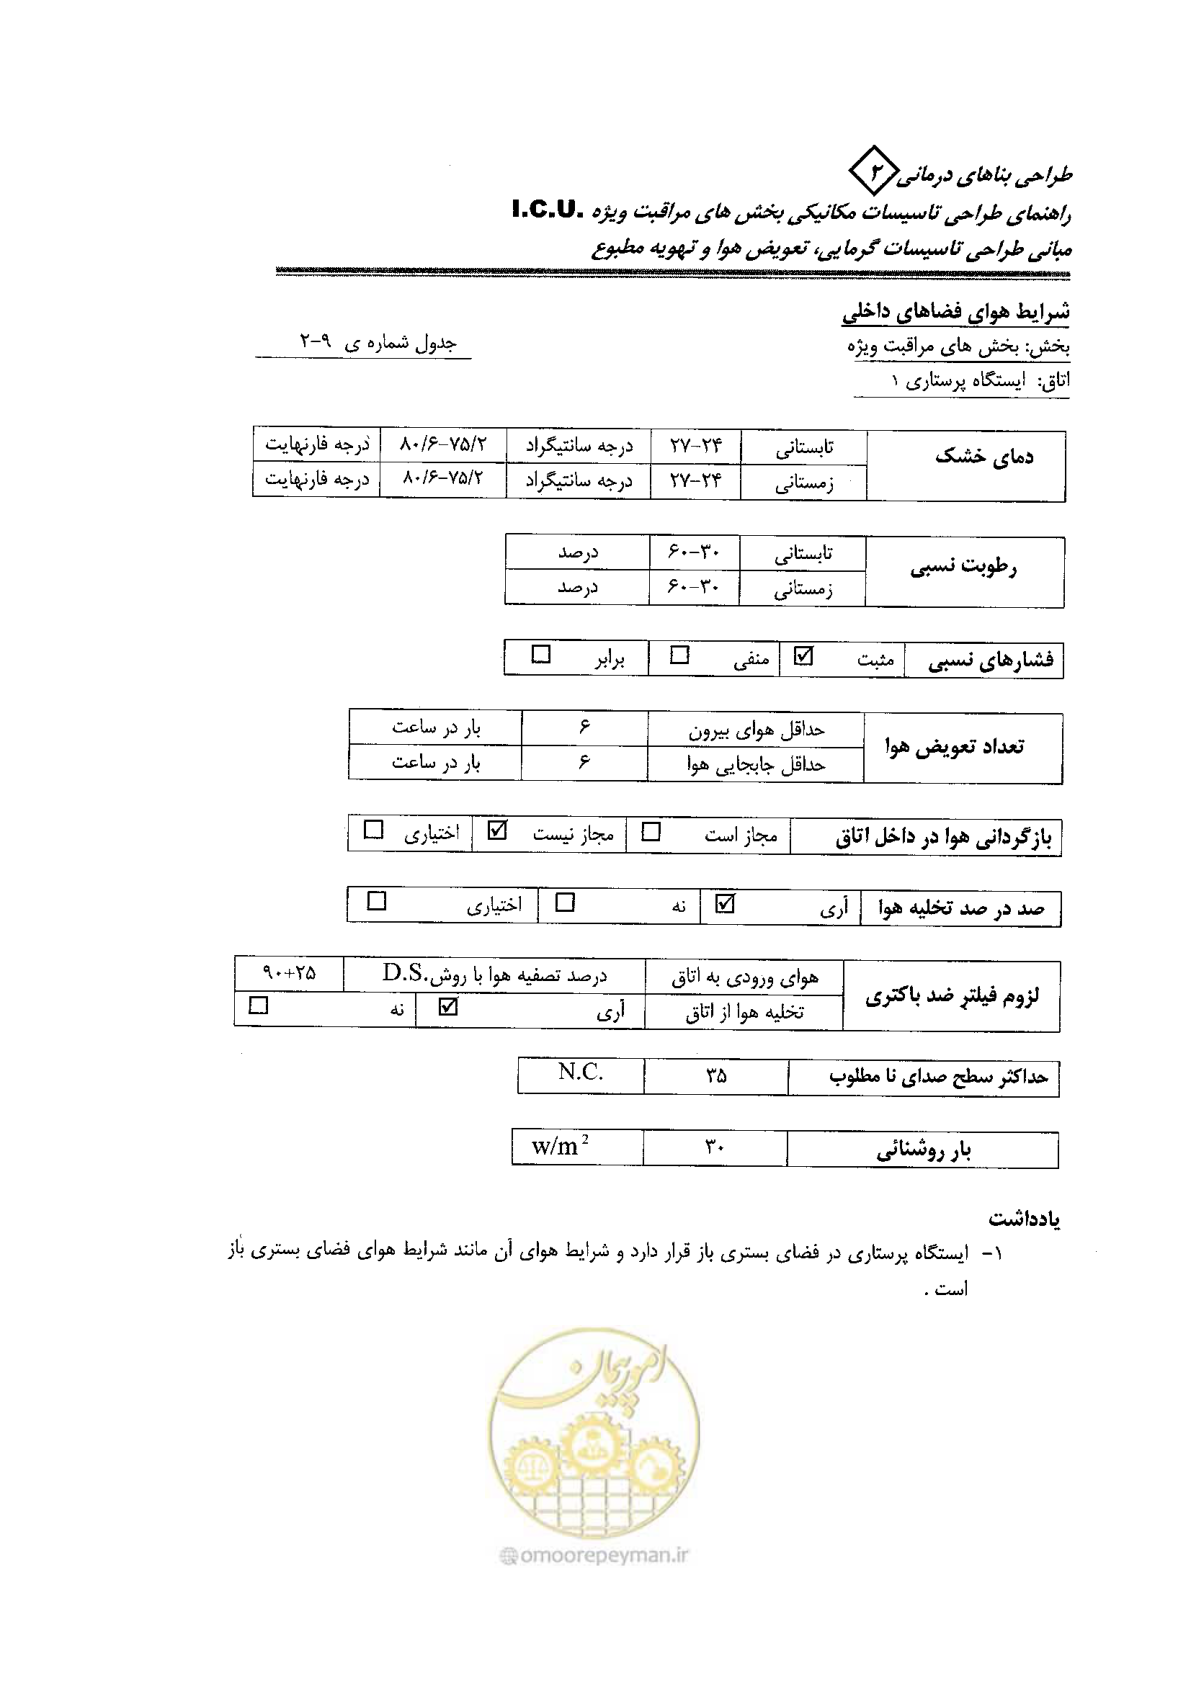 طراحی بناهای درمانی ۲
راهنمای طراحی تاسیسات مکانیکی بخش های مراقبت ویژه .I.C.U
مبانی طراحی تاسیسات گرمایی، تعویض هوا و تهویه مطبوع
شرایط هوای فضاهای داخلی
بخش: بخش های مراقبت ویژه
جدول شماره ی ۹-۲
اتاق: ایستگاه پرستاری ۱
دمای خشک
تابستانی ۲۷-۲۴ درجه سانتیگراد ۸۰/۶-۷۵/۲ درجه فارنهایت
زمستانی ۲۷-۲۴ درجه سانتیگراد ۸۰/۶-۷۵/۲ درجه فارنهایت
رطوبت نسبی
تابستانی ۶۰-۳۰ درصد
زمستانی ۶۰-۳۰ درصد
فشارهای نسبی مثبت ☑ منفی ☐ برابر ☐
تعداد تعویض هوا
حداقل هوای بیرون ۶ بار در ساعت
حداقل جابجایی هوا ۶ بار در ساعت
بازگردانی هوا در داخل اتاق مجاز است ☐ مجاز نیست ☑ اختیاری ☐
صد در صد تخلیه هوا آری ☑ نه ☐ اختیاری ☐
لزوم فیلتر ضد باکتری
هوای ورودی به اتاق درصد تصفیه هوا با روش D.S. ۹۰+۲۵
تخلیه هوا از اتاق آری ☑ نه ☐
حداکثر سطح صدای نا مطلوب ۳۵ N.C.
بار روشنائی ۳۰ w/m²
یادداشت
۱- ایستگاه پرستاری در فضای بستری باز قرار دارد و شرایط هوای آن مانند شرایط هوای فضای بستری باز
است .
امور پیمان
omoorepeyman.ir